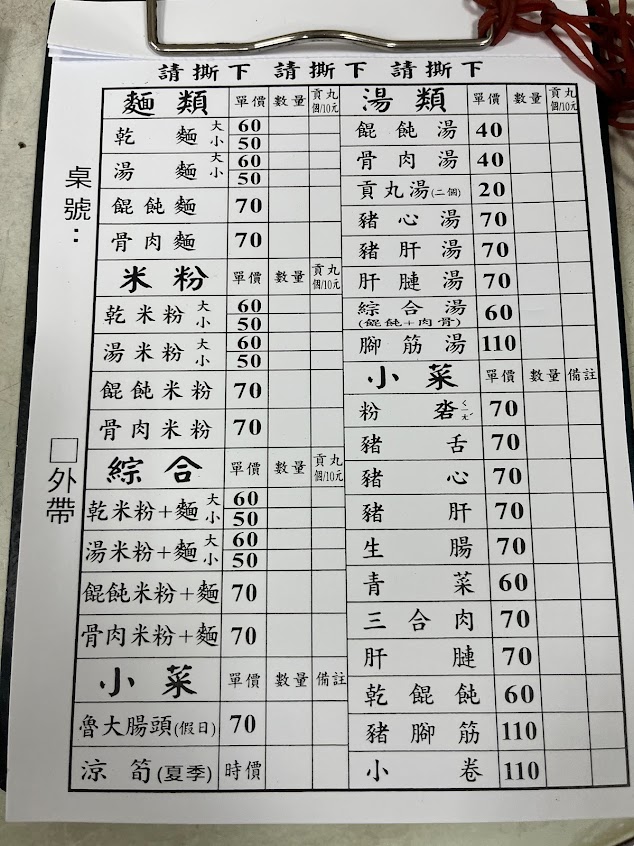 請撕下 請撕下 請撕下
桌號：
□外帶
麵類 單價 數量 貢丸個/10元
乾麵 大 60
小 50
湯麵 大 60
小 50
餛飩麵 70
骨肉麵 70
米粉 單價 數量 貢丸個/10元
乾米粉 大 60
小 50
湯米粉 大 60
小 50
餛飩米粉 70
骨肉米粉 70
綜合 單價 數量 貢丸個/10元
乾米粉+麵 大 60
小 50
湯米粉+麵 大 60
小 50
餛飩米粉+麵 70
骨肉米粉+麵 70
小菜 單價 數量 備註
魯大腸頭(假日) 70
涼筍(夏季) 時價
湯類 單價 數量 貢丸個/10元
餛飩湯 40
骨肉湯 40
貢丸湯(二個) 20
豬心湯 70
豬肝湯 70
肝腱湯 70
綜合湯 60
(餛飩+肉骨)
腳筋湯 110
小菜 單價 數量 備註
粉 ㄑㄧㄠˊ 70
豬舌 70
豬心 70
豬肝 70
生腸 70
青菜 60
三合肉 70
肝腱 70
乾餛飩 60
豬腳筋 110
小卷 110